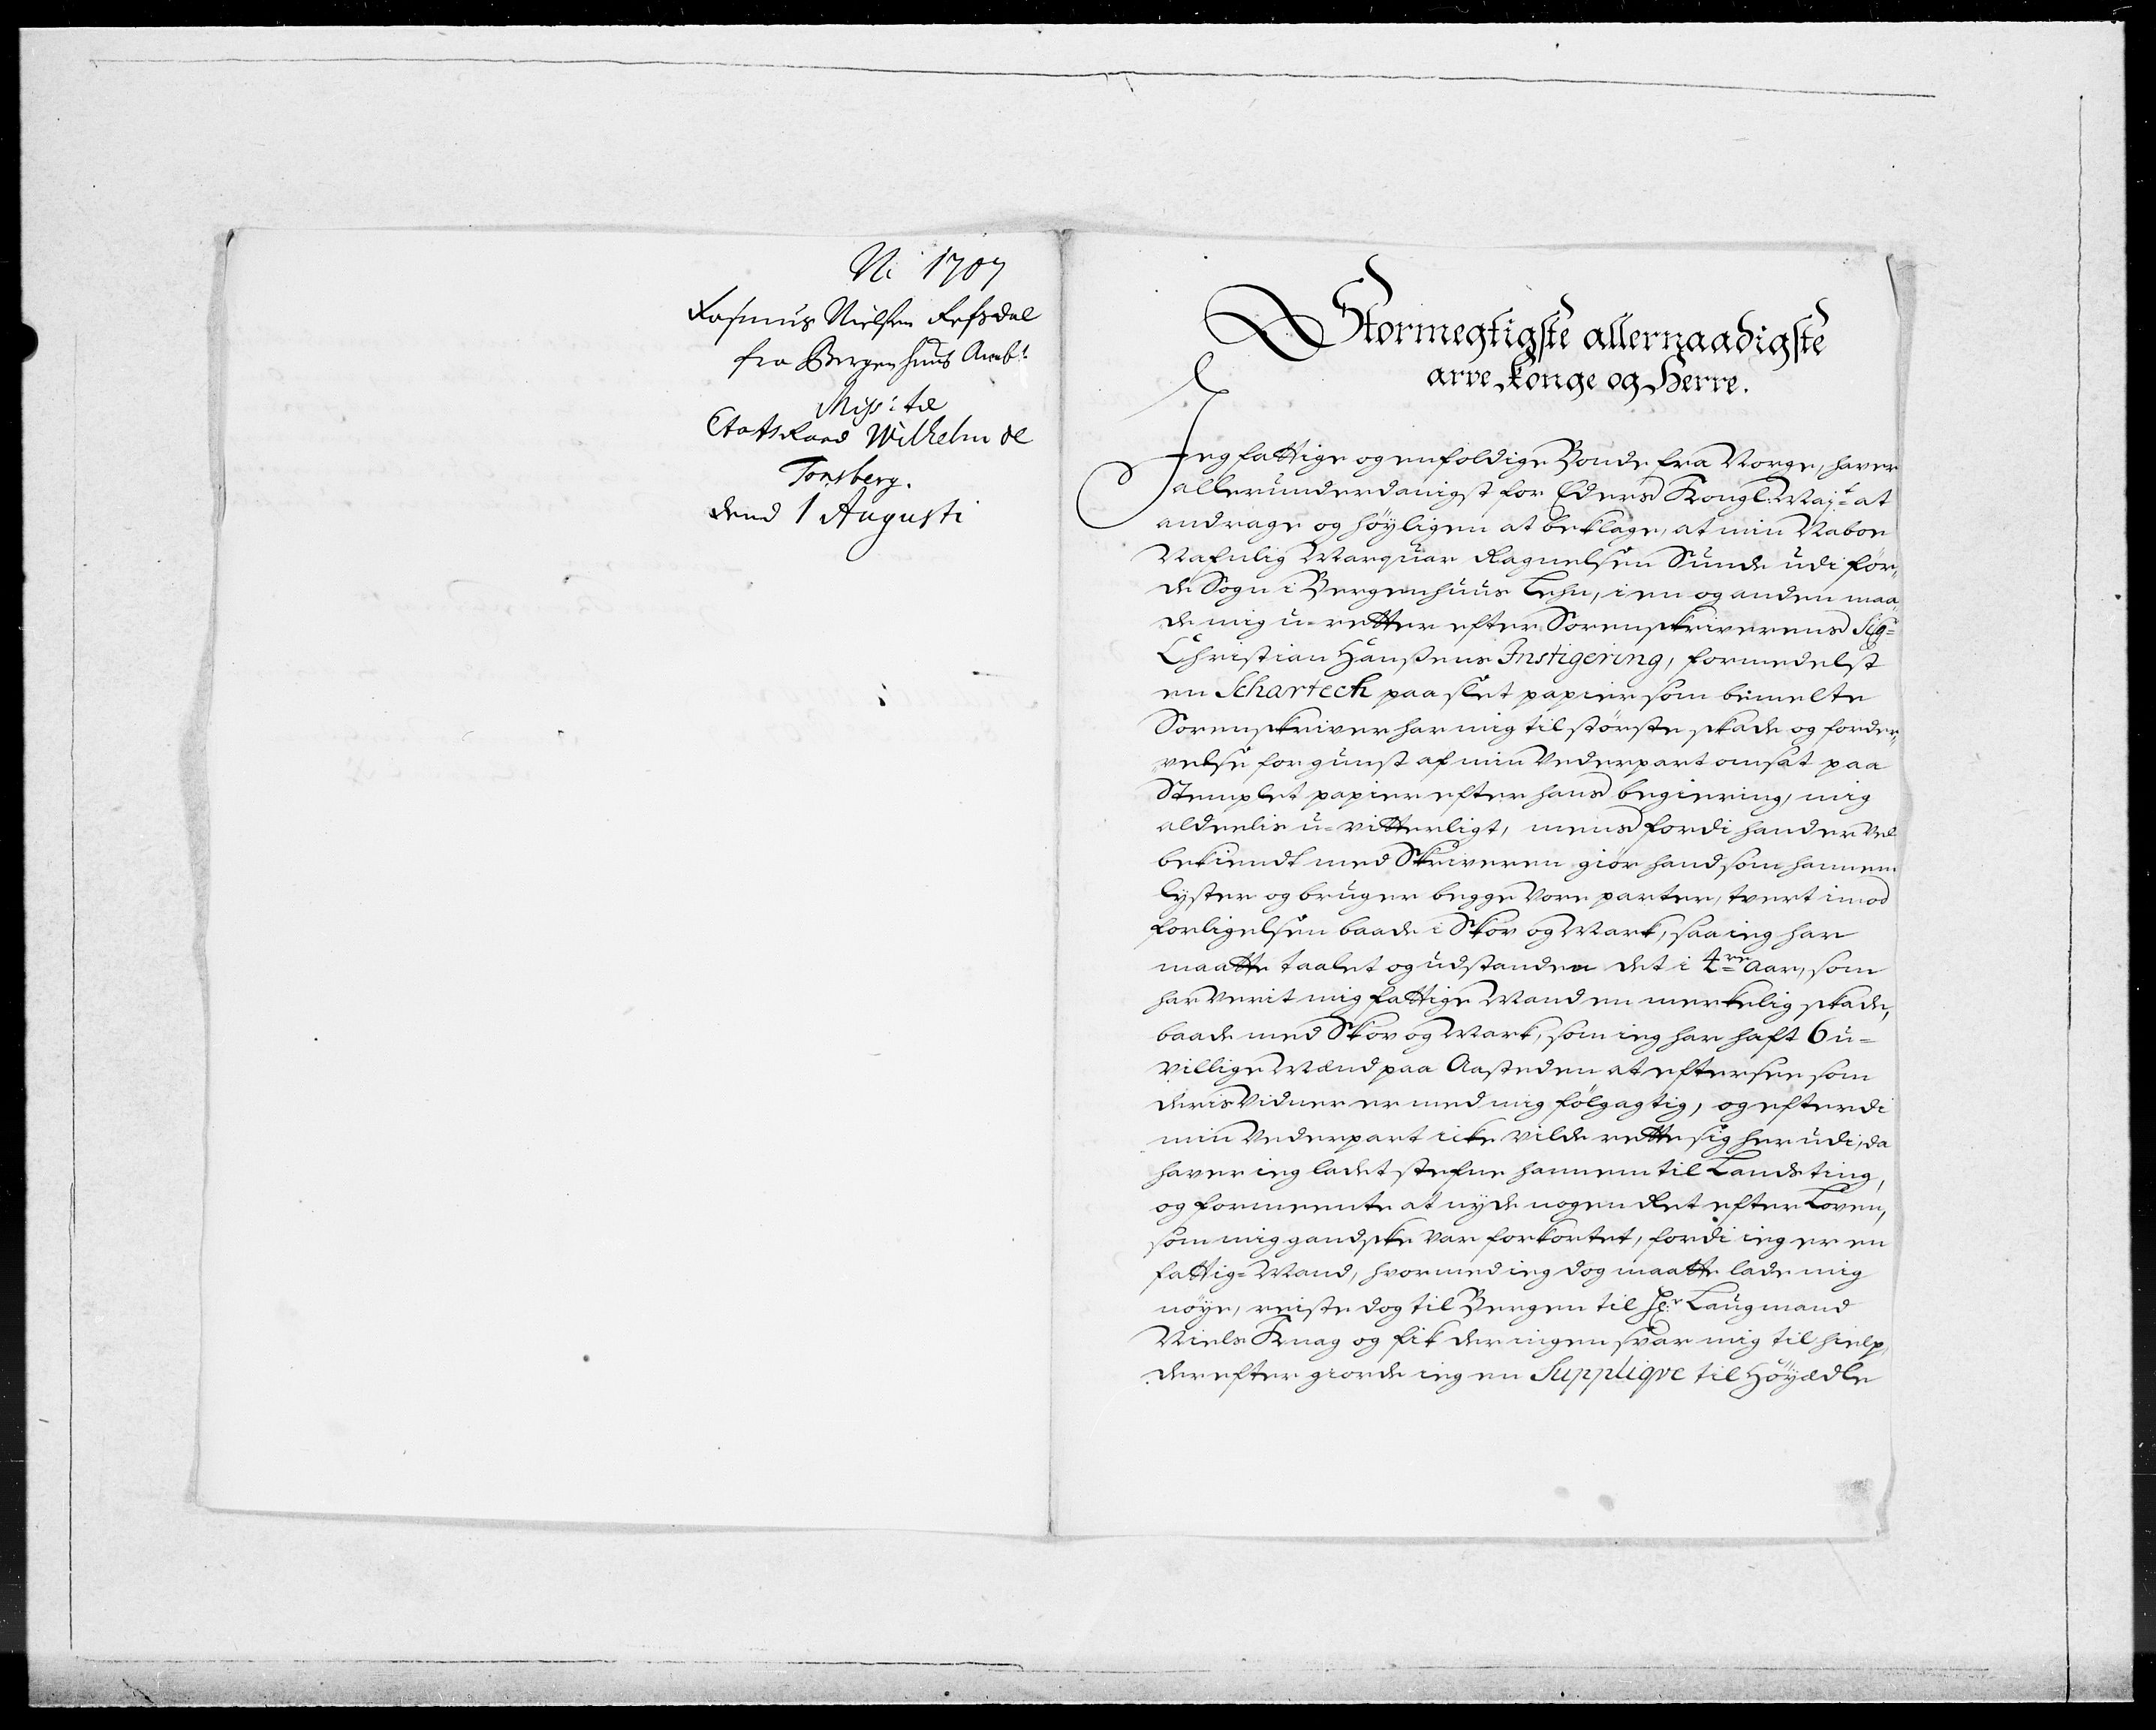 Ni 1707
Rasmus Nielsen Refsdal
fra Bergenhuus Ambt:
Miss: til
EtatsRaad Wilhelm de
Tonsberg.
dend 1 Augusti
Stormegtigste allernaadigste
arve Konge og Herre.
Jeg fattige og enfoldige Bonde fra Norge, haver
allerunderdanigst for Eders Kongl: Majt= at
andrage og höyligen at beklage, at min Naboe
Nafnlig Marquar Ragnelsen Sunde udi För,,
de Sogn i Bergenhuus Lehn, i en og anden maa,,
de mig u-retter efter Sorenskriverens Sigr=
Christian Hansens Instigering, formedelst
en Scharteck paa slet papier som bemelte
Sorenskriver har mig til störste skade og forder,,
velse for gunst af min Vederpart omsat paa
Stemplet papier efter hans begiering, mig
aldeelis u-vitterligt, mens fordi hand er vel
bekiendt med Skriveren giör hand som hannem
lyster og bruger begge vore parter, tvert imod
forligelsen baade i Skov og Mark, saa ieg har
maatte taalet og udstanden det i 4re Aar, som
har verit mig fattige Mand en merkelig skade,
baade med Skov og Mark, som ieg har haft 6 u-
villige Mænd paa Aasteden at eftersee som
deris Vidner er med mig fölgagtig, og efterdi
min Vederpart icke vilde rette sig her udi, da
haver ieg ladet stefne hannem til Landsting,
og formeente at nyde nogen Ret efter Loven,
som mig gandske var forkortet, fordi ieg er en
fattig-Mand, hvormed ieg dog maatte lade mig
nöye, reiste dog til Bergen til Hr. Laugmand
Niels Knag og fik der ingen svar mig til hielp,
derefter giorde ieg en Suppliqve til Höyædle